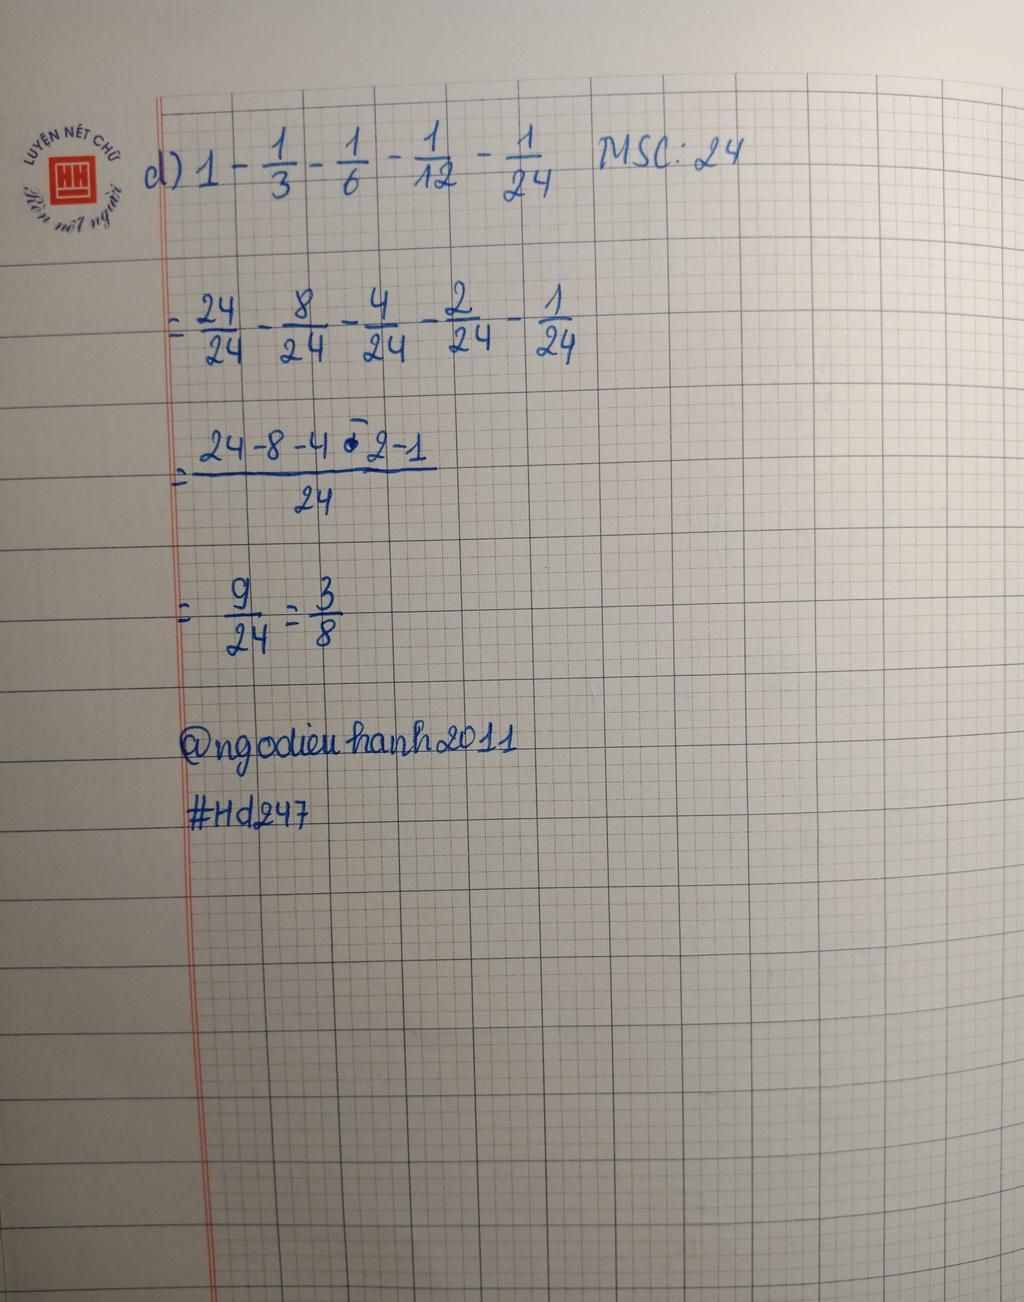 LUYỆN NÉT CHỮ
HH
Rèn nết người
d) 1 - 1/3 - 1/6 - 1/12 - 1/24 MSC: 24
= 24/24 - 8/24 - 4/24 - 2/24 - 1/24
= (24-8-4-2-1)/24
= 9/24 = 3/8
@ngodieuhanh2011
#Hd247